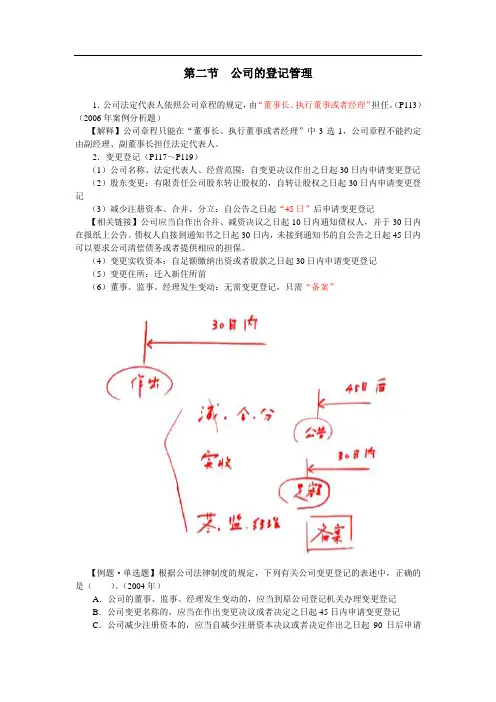 第二节　公司的登记管理
1．公司法定代表人依照公司章程的规定，由“董事长、执行董事或者经理”担任。（P113）
（2006年案例分析题）
【解释】公司章程只能在“董事长、执行董事或者经理”中3选1，公司章程不能约定
由副经理、副董事长担任法定代表人。
2．变更登记（P117～P119）
（1）公司名称、法定代表人、经营范围：自变更决议作出之日起30日内申请变更登记
（2）股东变更：有限责任公司股东转让股权的，自转让股权之日起30日内申请变更登
记
（3）减少注册资本、合并、分立：自公告之日起“45日”后申请变更登记
【相关链接】公司应当自作出合并、减资决议之日起10日内通知债权人，并于30日内
在报纸上公告。债权人自接到通知书之日起30日内，未接到通知书的自公告之日起45日内
可以要求公司清偿债务或者提供相应的担保。
（4）变更实收资本：自足额缴纳出资或者股款之日起30日内申请变更登记
（5）变更住所：迁入新住所前
（6）董事、监事、经理发生变动：无需变更登记，只需“备案”
30日内
作出
45日后
减．合．分
公告
实收
30日内
足额
董．监．经理
备案
【例题·单选题】根据公司法律制度的规定，下列有关公司变更登记的表述中，正确的
是（　　）。（2004年）
A．公司的董事、监事、经理发生变动的，应当到原公司登记机关办理变更登记
B．公司变更名称的，应当在作出变更决议或者决定之日起45日内申请变更登记
C．公司减少注册资本的，应当自减少注册资本决议或者决定作出之日起90日后申请